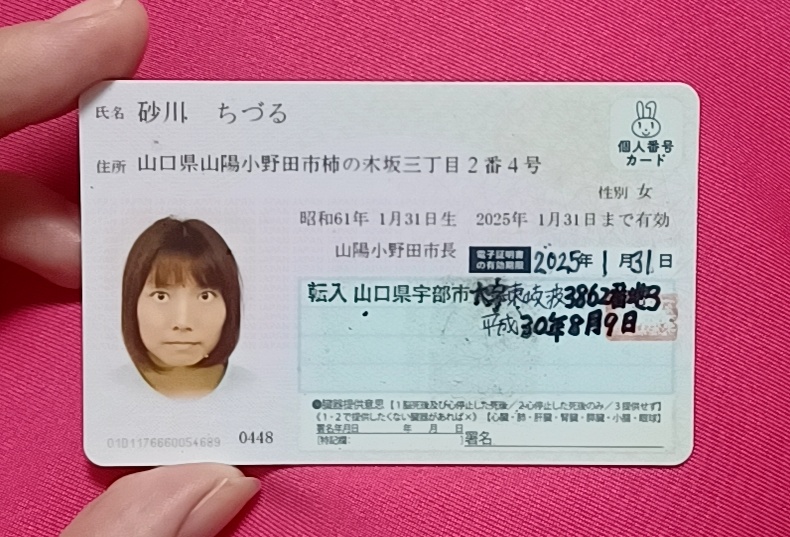 氏名 砂川 ちづる
個人番号
カード
住所 山口県山陽小野田市柿の木坂三丁目2番4号
性別 女
昭和61年 1月31日生 2025年 1月31日まで有効
山陽小野田市長
電子証明書
の有効期限 2025年 1月31日
転入 山口県宇部市大字東岐波3862番地3
平成30年8月9日
臓器提供意思【1脳死後及び心停止した死後/2心停止した死後のみ/3提供せず】
《1・2で提供したくない臓器があれば×》【心臓・肺・肝臓・腎臓・膵臓・小腸・眼球】
署名年月日 年 月 日
[特記欄: ]署名
01D1176660054689 0448